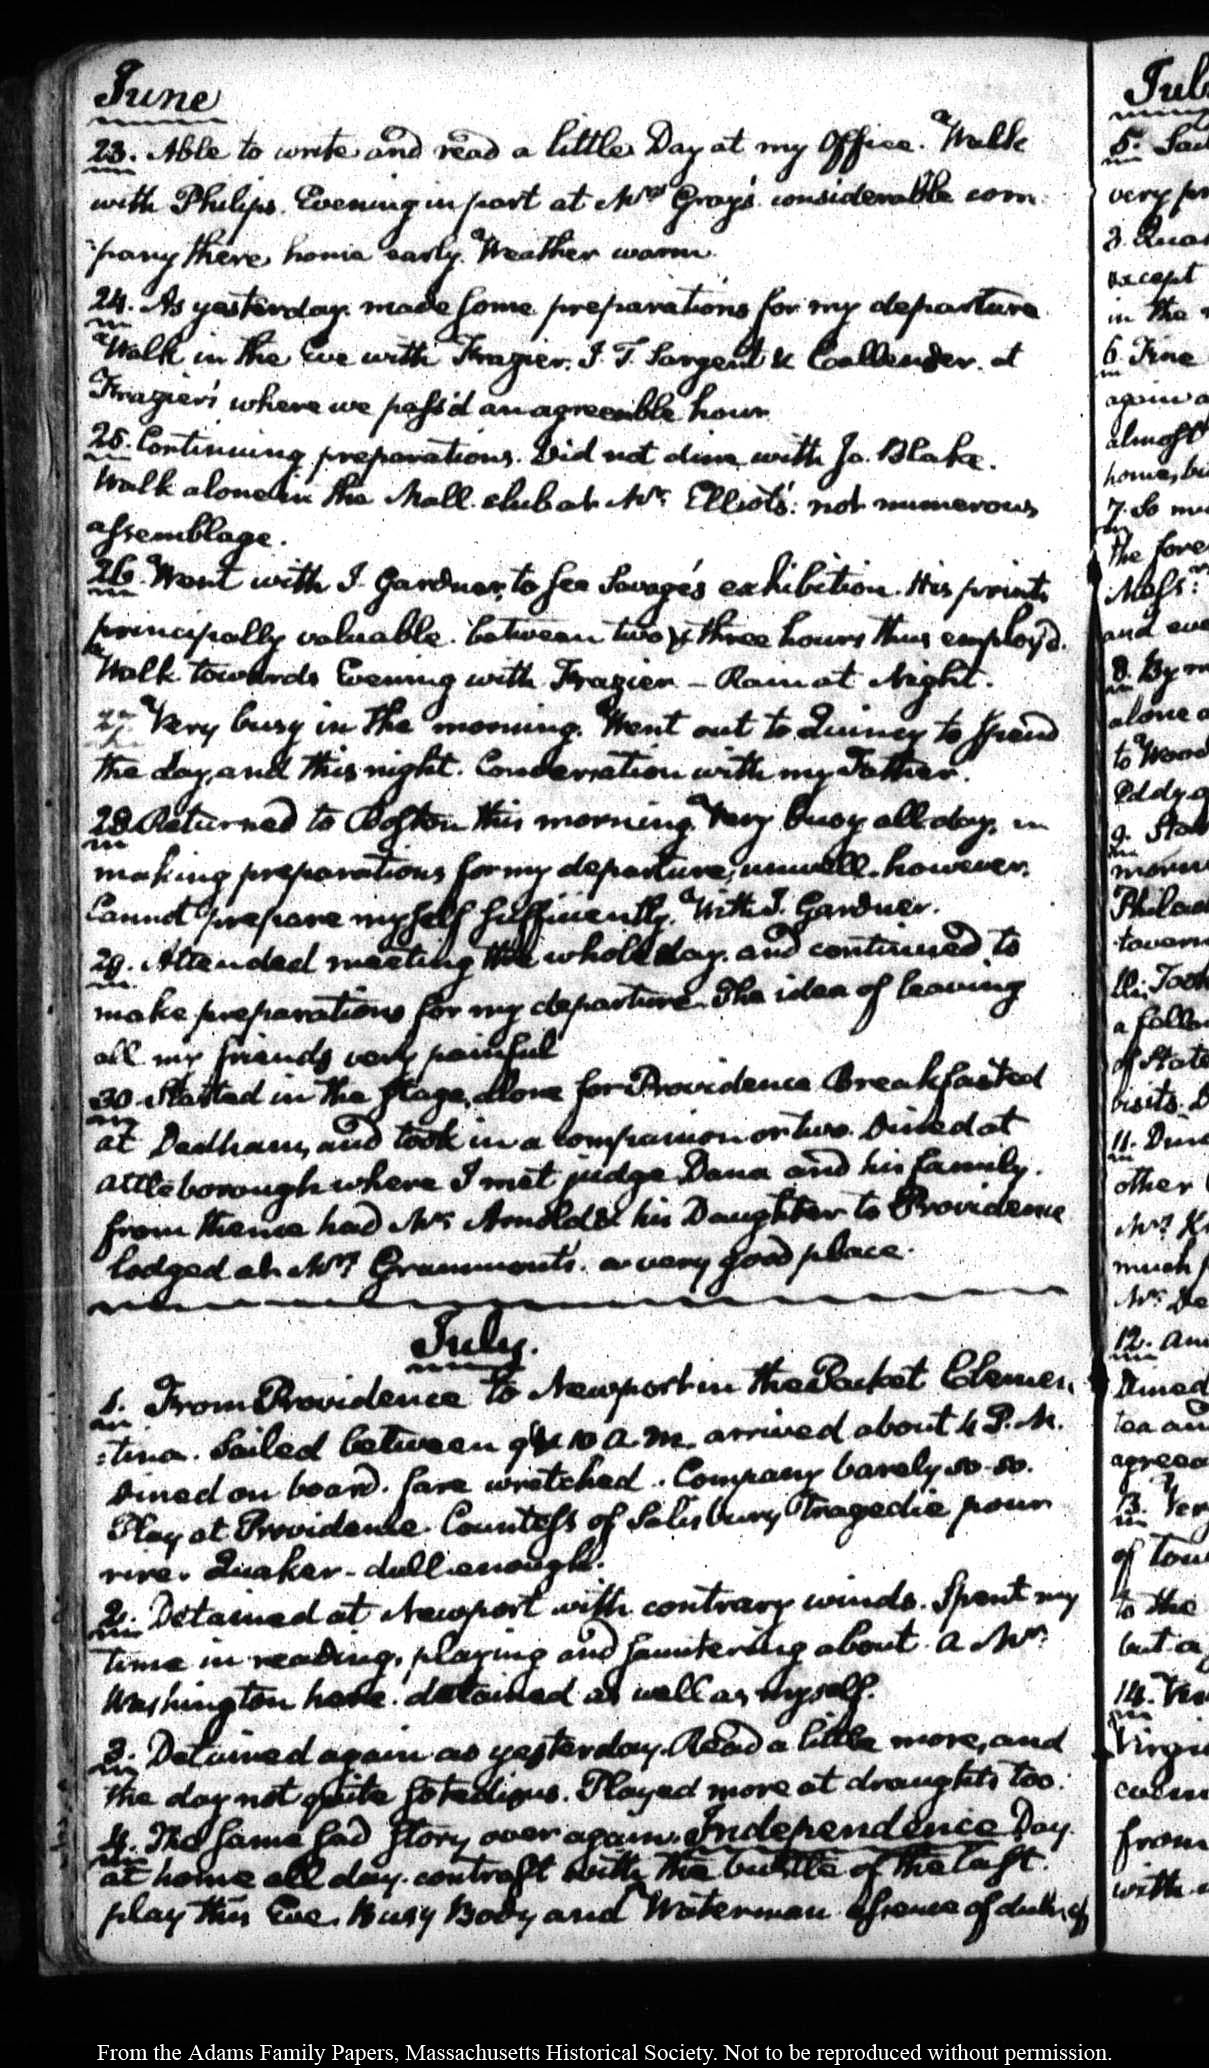 June
23. Able to write and read a little Day at my Office. Walk
with Philips. Evening in part at Mrs Gray's. considerable com-
pany there, home early. Weather warm.
24. As yesterday. made some preparations for my departure
Walk in the Eve with Frazier. J. T. Sargent & Callender. at
Frazier's where we pass'd an agreeable hour
25. Continuing preparations. Did not dine with Jo. Blake.
Walk alone in the Mall. club at Mr. Elliot's: not numerous
assemblage.
26. Went with J. Gardner, to see Savage's exhibition. His prints
principally valuable. between two & three hours thus employ'd.
Walk towards Evening with Frazier – Rain at Night.
27. Very busy in the morning. Went out to Quincy to spend
the day, and this night. Conversation with my Father.
28. Returned to Boston this morning. Very busy all day, in
making preparations for my departure; unwell. however.
Cannot prepare myself sufficiently. With J. Gardner.
29. Attended meeting the whole day. and continued to
make preparations for my departure. The idea of leaving
all my friends very painful
30. Started in the stage, alone for Providence Breakfasted
at Dedham, and took in a companion or two. Dined at
Attleborough where I met judge Dana and his family.
from thence had Mr. Arnold & his Daughter to Providence
lodged at Mrs. Grammont's. a very good place.
July.
1. From Providence to Newport in the Packet Clemen-
:tina. Sailed between 9 & 10 A.M. arrived about 4 P.M.
Dined on board. fare wretched. Company barely so-so.
Play at Providence. Countess of Salisbury Tragedie pour
rire. Quaker - dull enough.
2. Detained at Newport with contrary winds. Spent my
time in reading, playing and sauntering about. A Mr.
Washington here. detained as well as myself.
3. Detained again as yesterday. Read a little more, and
the day not quite so tedious. Played more at draughts too.
4. The same sad story over again. Independence Day.
at home all day. contrast with the bustle of the last.
play this Eve. Busy Body and Waterman essence of
July
5.
very
3.
except
in the
6. Fine
again
almost
7. So
the
Mass:
and
8. By
alone
to
Eddy
9.
10. Took
a
of State
visits.
11.
other
much
12.
Dined
tea
13.
of
to the
but a
14.
from
with
From the Adams Family Papers, Massachusetts Historical Society. Not to be reproduced without permission.